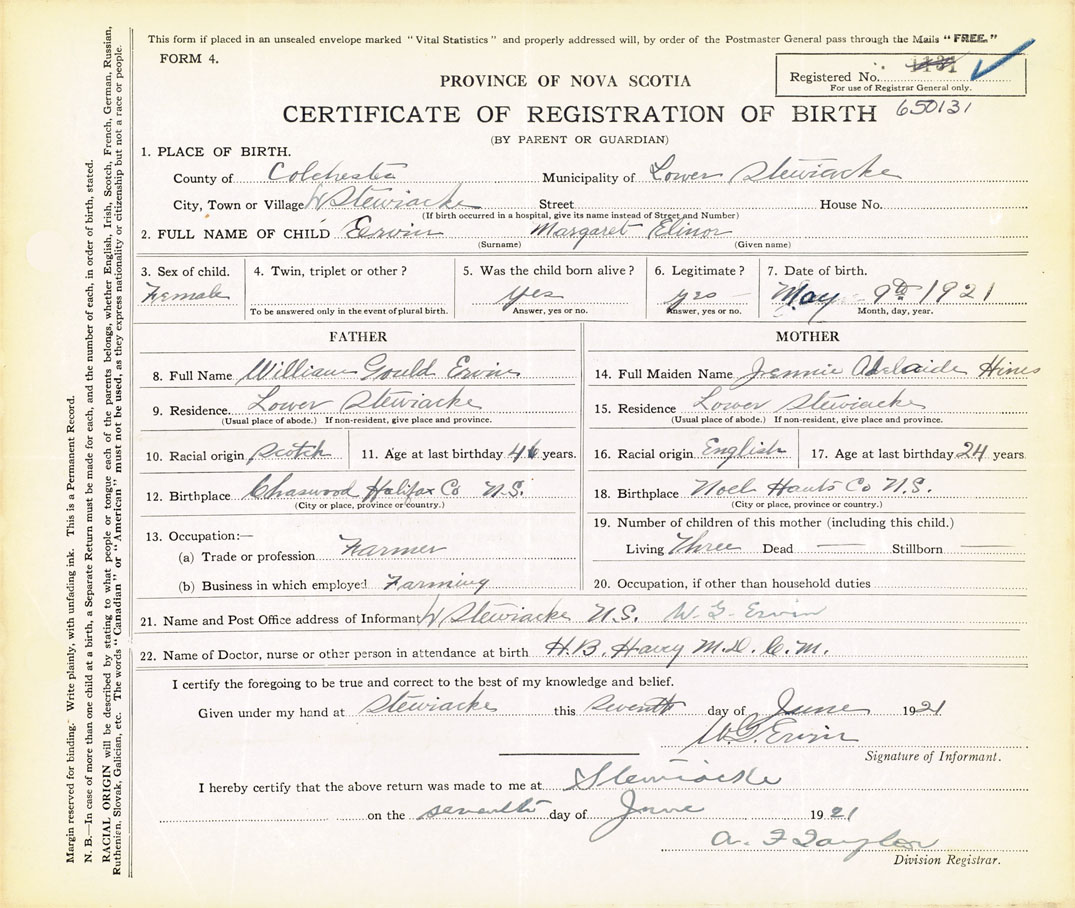 This form if placed in an unsealed envelope marked "Vital Statistics" and properly addressed will, by order of the Postmaster General pass through the Mails "FREE."
FORM 4.
Registered No.
For use of Registrar General only.
PROVINCE OF NOVA SCOTIA
CERTIFICATE OF REGISTRATION OF BIRTH 650131
(BY PARENT OR GUARDIAN)
1. PLACE OF BIRTH.
County of Colchester Municipality of Lower Stewiacke
City, Town or Village Stewiacke Street House No.
(If birth occurred in a hospital, give its name instead of Street and Number)
2. FULL NAME OF CHILD Ervin Margaret Elinor
(Surname) (Given name)
3. Sex of child. 4. Twin, triplet or other? 5. Was the child born alive? 6. Legitimate? 7. Date of birth.
Female yes yes May 9th 1921
To be answered only in the event of plural birth. Answer, yes or no. Answer, yes or no. Month, day, year.
FATHER
8. Full Name William Gould Ervin
9. Residence. Lower Stewiacke
(Usual place of abode.) If non-resident, give place and province.
10. Racial origin Scotch 11. Age at last birthday 46 years.
12. Birthplace Chaswood Halifax Co N.S.
(City or place, province or country.)
13. Occupation:—
(a) Trade or profession Farmer
(b) Business in which employed Farming
MOTHER
14. Full Maiden Name Jennie Adelaide Hines
15. Residence Lower Stewiacke
(Usual place of abode.) If non-resident, give place and province.
16. Racial origin English 17. Age at last birthday 24 years
18. Birthplace Noel Hants Co N.S.
(City or place, province or country.)
19. Number of children of this mother (including this child.)
Living Three Dead — Stillborn —
20. Occupation, if other than household duties
21. Name and Post Office address of Informant Stewiacke N.S. W. G. Ervin
22. Name of Doctor, nurse or other person in attendance at birth H. B. Havey M.D. C.M.
I certify the foregoing to be true and correct to the best of my knowledge and belief.
Given under my hand at Stewiacke this seventh day of June 1921
W. G. Ervin
Signature of Informant.
I hereby certify that the above return was made to me at Stewiacke
on the seventh day of June 1921
A. F Taylor
Division Registrar.
Margin reserved for binding. Write plainly, with unfading ink. This is a Permanent Record.
N. B.—In case of more than one child at a birth, a Separate Return must be made for each, and the number of each, in order of birth, stated.
RACIAL ORIGIN will be described by stating to what people or tongue each of the parents belongs, whether English, Irish, Scotch, French, German, Russian,
Ruthenian, Slovak, Galician, etc. The words "Canadian" or "American" must not be used, as they express nationality or citizenship but not a race or people.